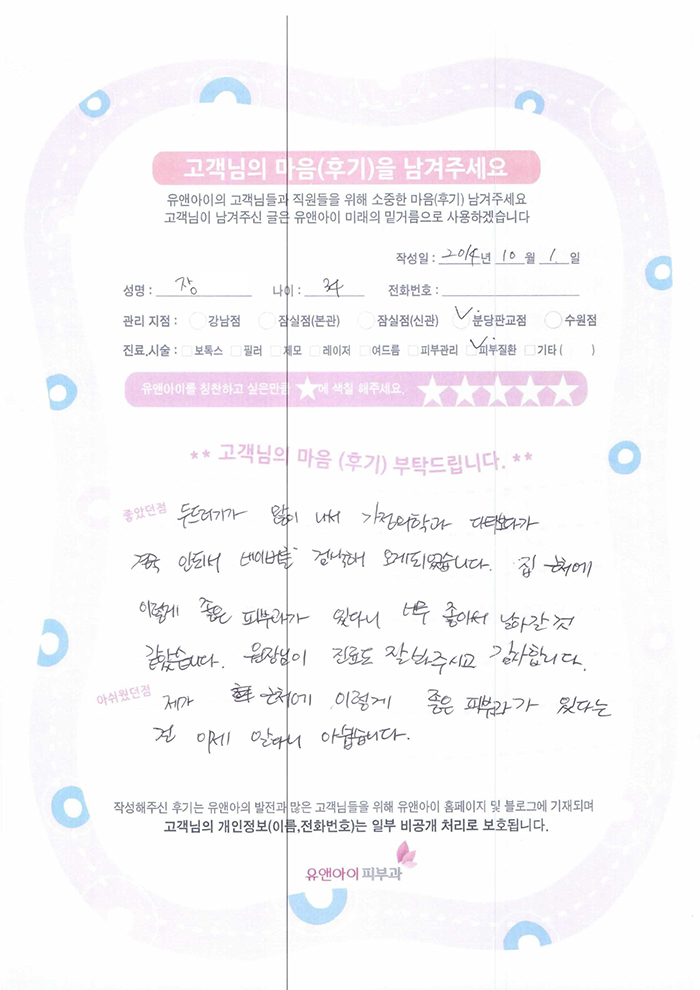 고객님의 마음(후기)을 남겨주세요
유앤아이의 고객님들과 직원들을 위해 소중한 마음(후기) 남겨주세요
고객님이 남겨주신 글은 유앤아이 미래의 밑거름으로 사용하겠습니다
작성일 : 2014년 10월 1일
성명 : 장 나이 : 34 전화번호 :
관리 지점 : 강남점 잠실점(본관) 잠실점(신관) 분당판교점 수원점
진료,시술 : 보톡스 필러 제모 레이저 여드름 피부관리 피부질환 기타 ( )
유앤아이를 칭찬하고 싶은만큼 ★에 색칠 해주세요. ★★★★★
** 고객님의 마음 (후기) 부탁드립니다. **
좋았던점 두드러기가 많이 나서 가정의학과 다녀보다가
결국 안되서 네이버를 검색해 오게되었습니다. 집 근처에
이렇게 좋은 피부과가 있다니 너무 좋아서 날아갈 것
같았습니다. 원장님이 진료도 잘 봐주시고 감사합니다.
아쉬웠던점 제가 근처에 이렇게 좋은 피부과가 있다는
걸 이제 알다니 아쉽습니다.
작성해주신 후기는 유앤아의 발전과 많은 고객님들을 위해 유앤아이 홈페이지 및 블로그에 기재되며
고객님의 개인정보(이름,전화번호)는 일부 비공개 처리로 보호됩니다.
유앤아이피부과